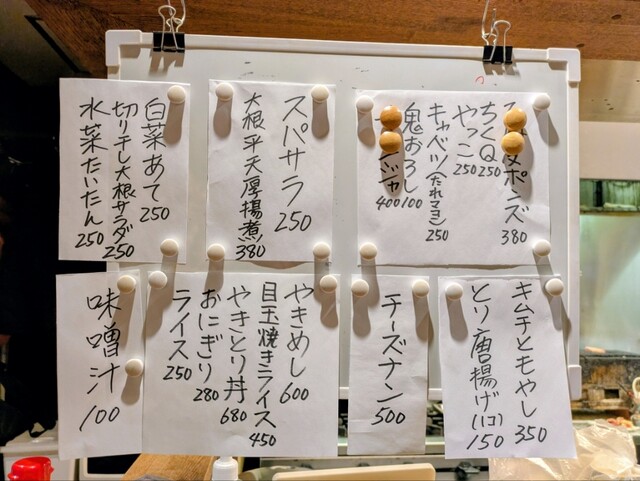 ポンズ 380
ちくQ 250
やっこ 250
キャベツ(たれマヨ) 250
鬼おろし 100
400
スパサラ 250
大根平天厚揚煮 380
白菜あて 250
切り干し大根サラダ 250
水菜たいたん 250
キムチともやし 350
とり唐揚げ(1コ) 150
チーズナン 500
やきめし 600
目玉焼きライス 450
やきとり丼 680
おにぎり 280
ライス 250
味噌汁 100